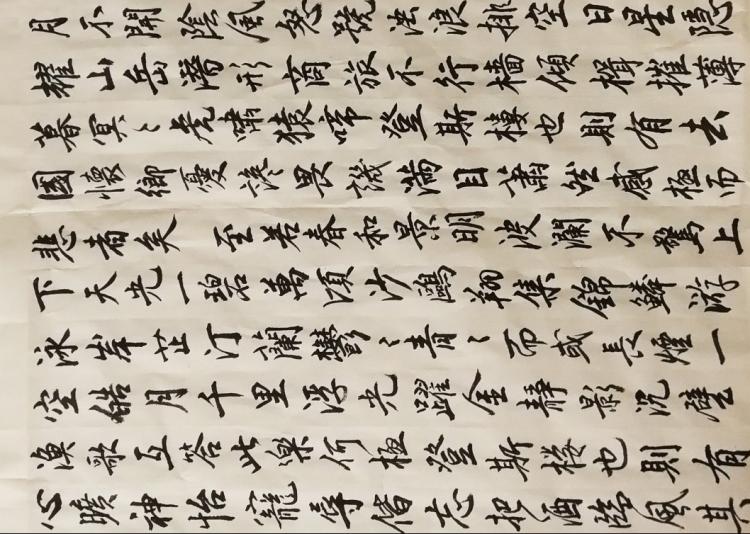 月不開陰風怒號濁浪排空日星隱
耀山岳潛形商旅不行檣傾楫摧薄
暮冥〻虎嘯猿啼登斯樓也則有去
國懷鄉憂讒畏譏滿目蕭然感極而
悲者矣 至若春和景明波瀾不驚上
下天光一碧萬頃沙鷗翔集錦鱗游
泳岸芷汀蘭鬱〻青〻而或長煙一
空皓月千里浮光躍金靜影沉璧
漁歌互答此樂何極登斯楼也則有
心曠神怡寵辱偕忘把酒臨風其